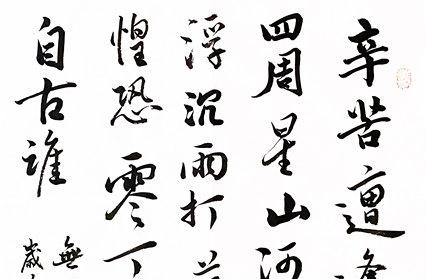 辛苦遭逢
四周星山河
浮沉雨打
惶恐零丁
自古誰
無
歲